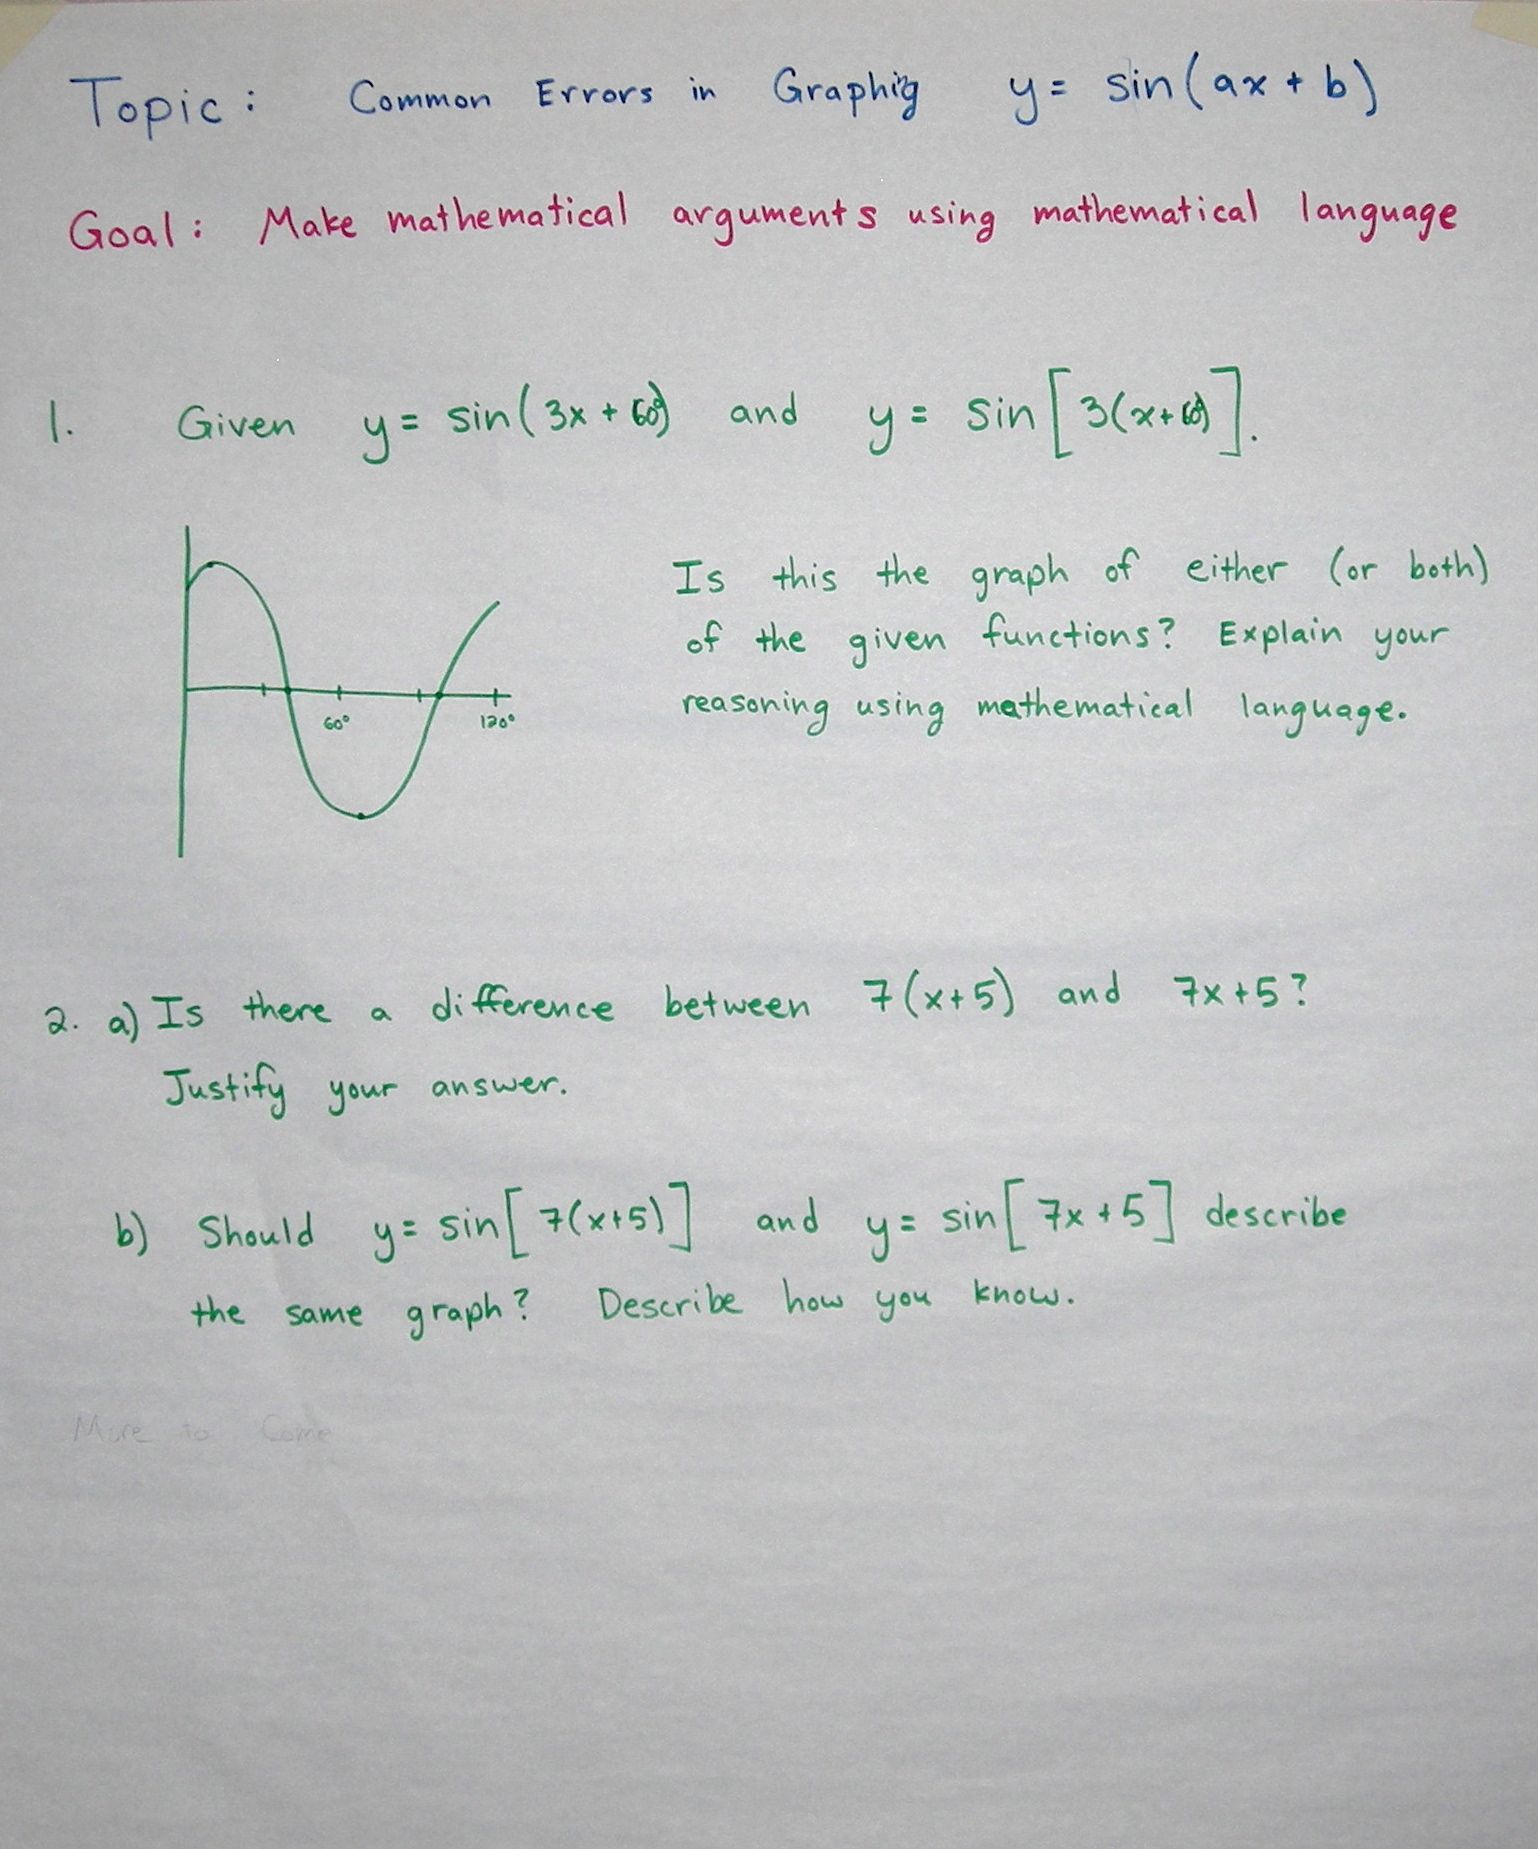 Topic: Common Errors in Graphing y = sin(ax + b)
Goal: Make mathematical arguments using mathematical language
1. Given y = sin(3x + 60°) and y = sin[3(x+60°)].
Is this the graph of either (or both)
of the given functions? Explain your
reasoning using mathematical language.
60° 120°
2. a) Is there a difference between 7(x+5) and 7x+5?
Justify your answer.
b) Should y = sin[7(x+5)] and y = sin[7x+5] describe
the same graph? Describe how you know.
More to Come